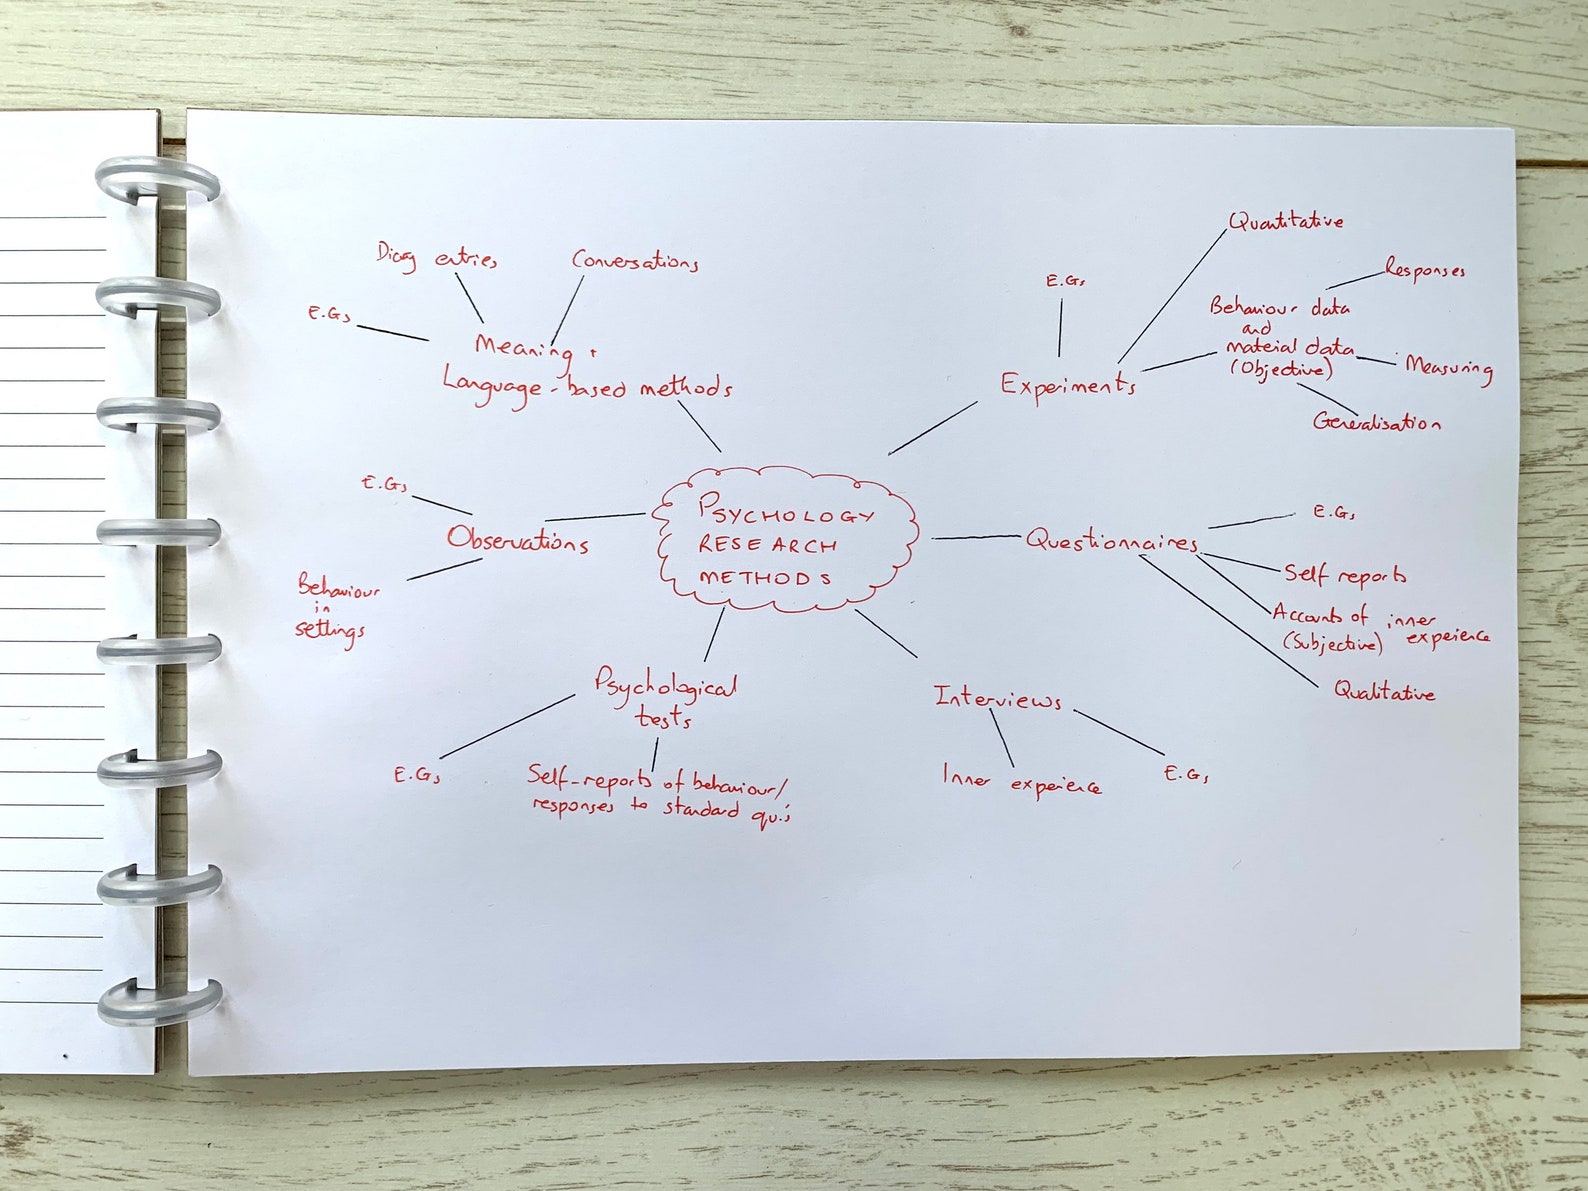 Quantitative
Diary entries
Conversations
Responses
E.Gs
E.Gs
Behaviour data
and
material data
(Objective)
Measuring
Generalisation
Meaning +
Language-based methods
Experiments
E.Gs
Observations
Behaviour
in
settings
PSYCHOLOGY
RESEARCH
METHODS
E.Gs
Questionnaires
Self reports
Accounts of inner experience
(Subjective)
Qualitative
Psychological
tests
E.Gs
Self-reports of behaviour/
responses to standard qu.'s
Interviews
Inner experience
E.Gs